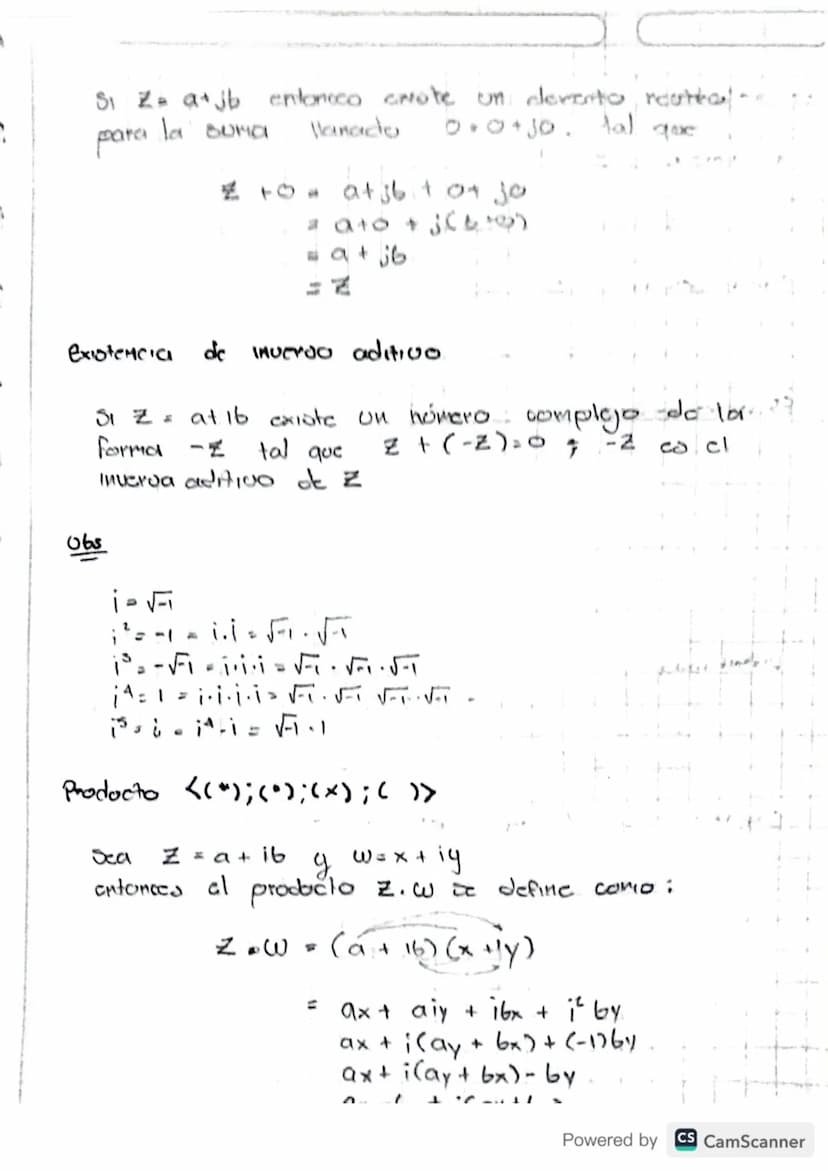 Si Z = a+jb entonces existe un elemento neutral
para la suma llamado 0 = 0+j0. tal que
Z + 0 = a+jb + 0+ j0
= a+0 + j(b+0)
= a + jb
= Z
Existencia de inverso aditivo
Si Z = a+ib existe un número complejo de la
forma -Z tal que Z + (-Z)=0 ; -Z es el
inverso aditivo de Z
Obs
i = √-1
i² = -1 = i.i = √-1 . √-1
i³ = -√-1 = i·i·i = √-1 · √-1 · √-1
i⁴ = 1 = i·i·i·i = √-1 · √-1 √-1 · √-1
i⁵ = i = i⁴·i = √-1 · 1
Producto <(*);(•);(x);( )>
Sea Z = a + ib y w = x + iy
entonces el producto Z.w se define como :
Z • w = (a + ib)(x + iy)
= ax + aiy + ibx + i² by
ax + i(ay + bx) + (-1)by
ax + i(ay + bx) - by
Powered by CS CamScanner